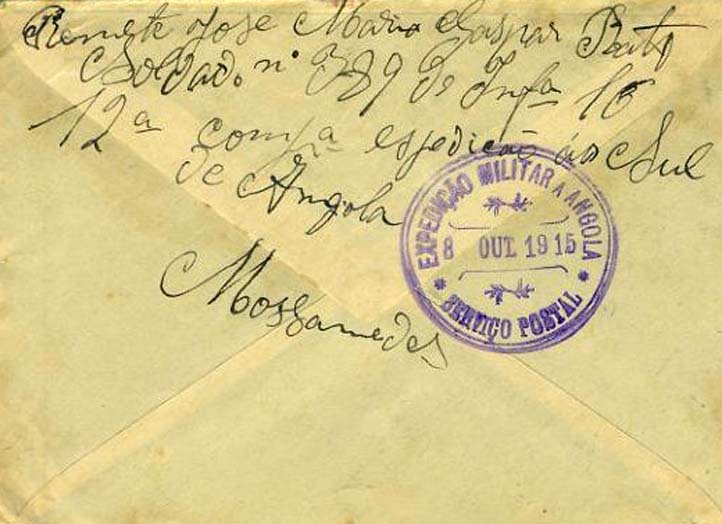 Remete Jose Maria Gaspar
Soldado nº 389 de Infª 16
12ª compª espedição áo Sul
de Angola
Mossamedes
EXPEDIÇÃO MILITAR A ANGOLA
8 OUT. 1915
* SERVIÇO POSTAL *